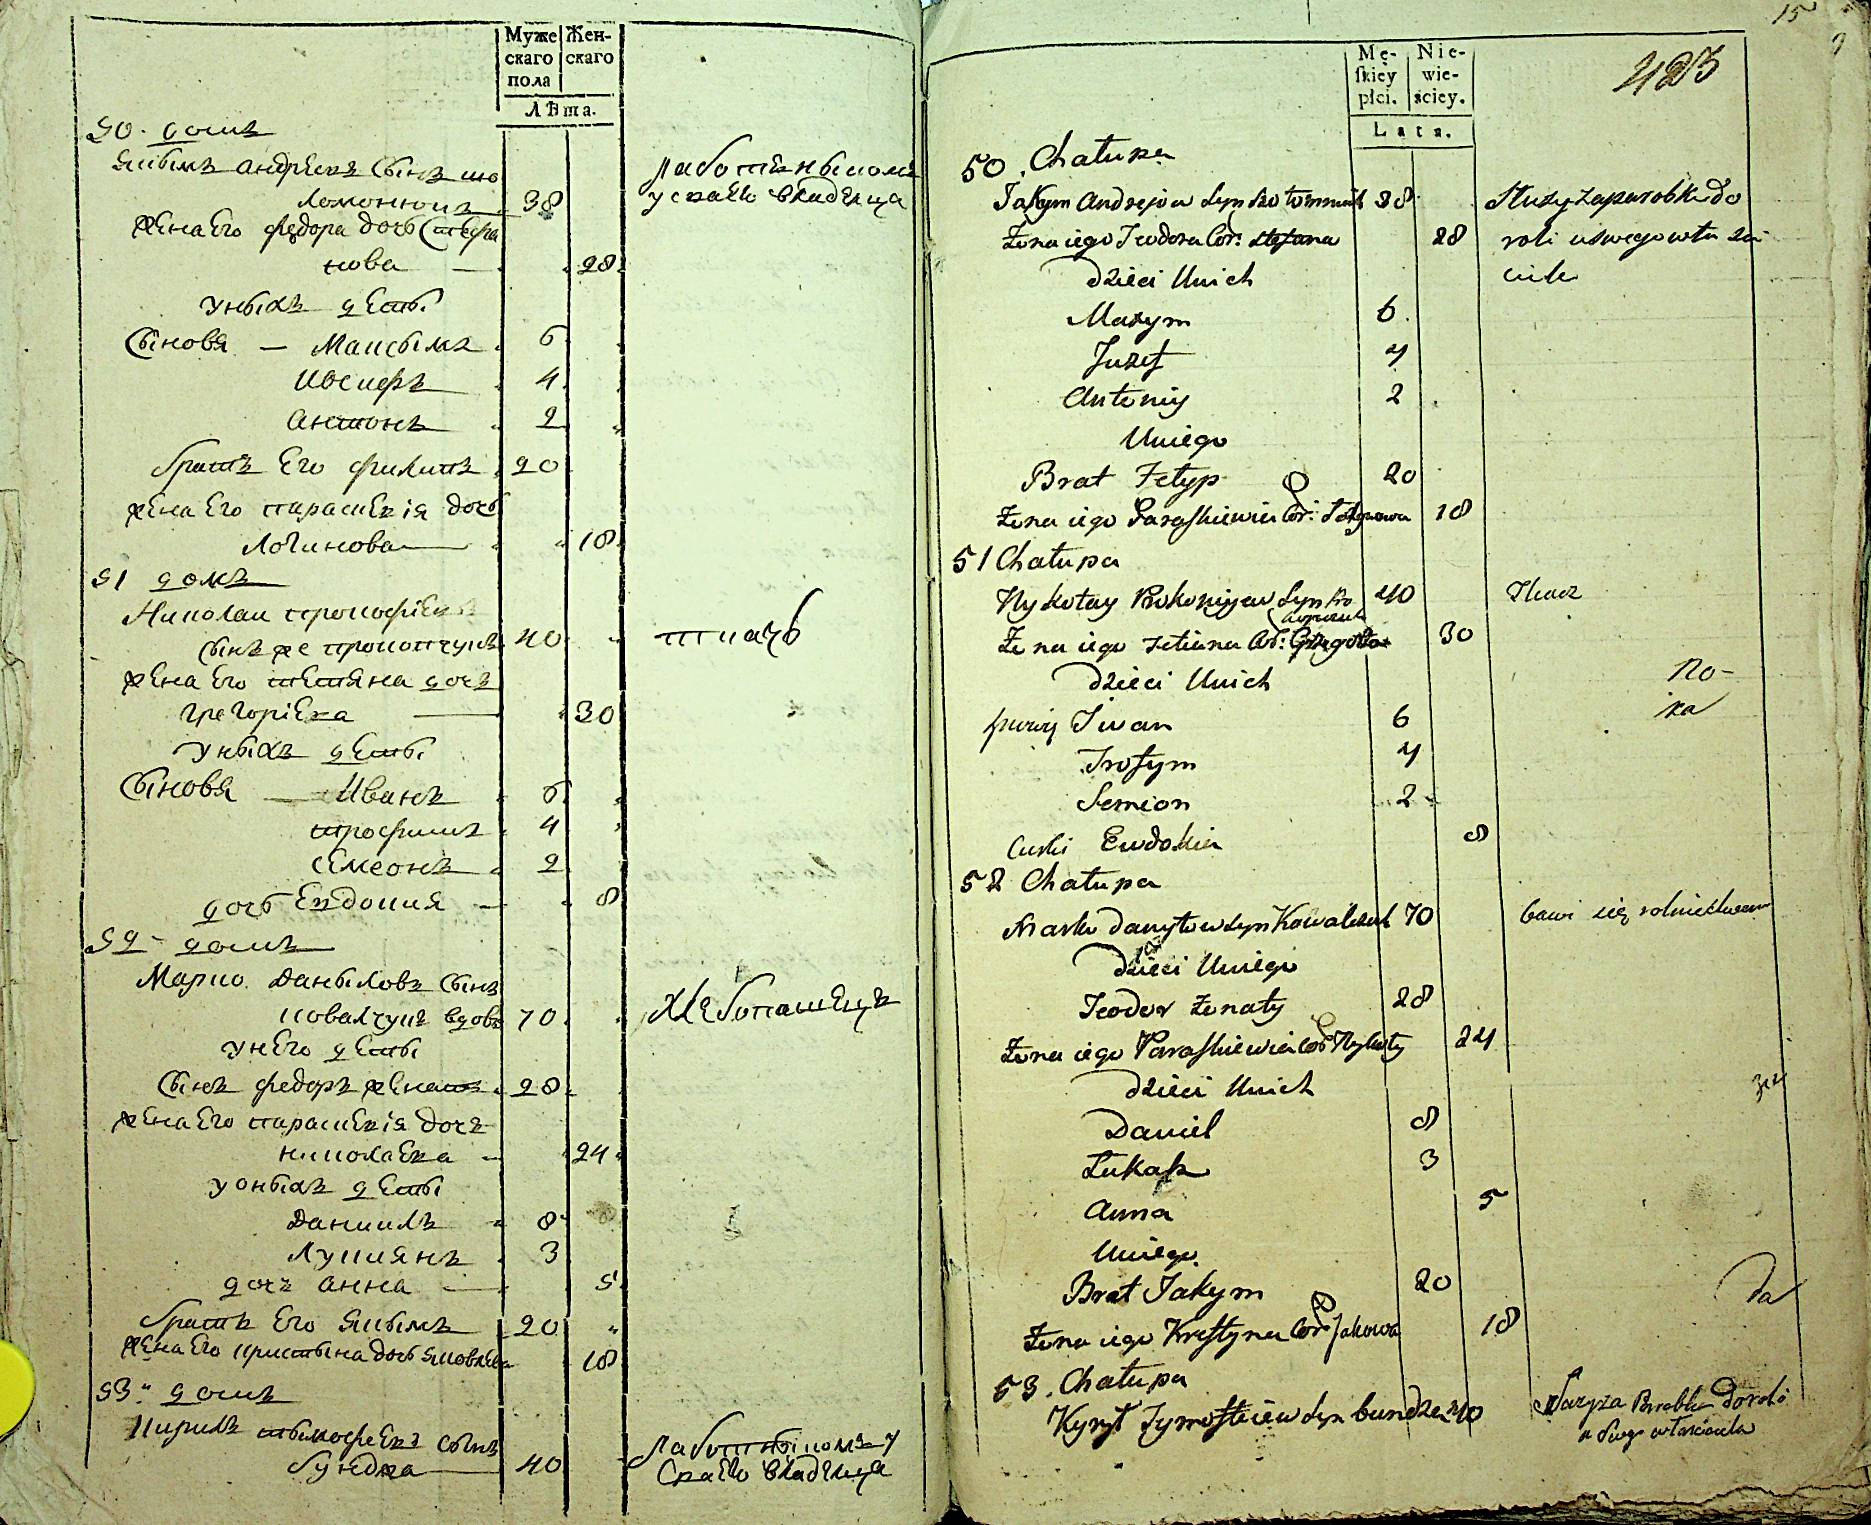 Муже
скаго
пола
Жен-
скаго
Лѣта.
50. домъ
Якымъ андреевъ сынъ шо
ломонюкъ 38
жена Его федора дочь стефа
нова — 28
у ныхъ дети
Сыновя — Максымъ 6
Иосифъ 4
антонъ 2
братъ Его филипъ 20
жена Его параскевія дочь
Логинова 18
работныкомъ
у своего владелца
51 домъ
Николай прокофіевъ
сынъ же прокопчукъ 40
ткачь
жена Его тетяна дочь
григоріева 30
у ныхъ дети
Сыновя — Иванъ 6
трофимъ 4
семеонъ 2
дочь Евдокия — 8
52 - домъ
Марко даныловъ сынъ
ковалчукъ вдовъ 70
Хлебопашецъ
у него дети
сынъ федоръ женатъ 28
жена Его параскевія дочь
николаева — 24
у оныхъ дети
Даниилъ 8
Лукиянъ 3
дочь анна — 5
братъ Его Якымъ 20
жена Его кристына дочь яковлева 18
53 домъ
Кирилъ тымофеевъ сынъ
бундза 40
работныкомъ у
своего владелца
15
9
423
Mę-
skiey
płci.
Nie-
wie-
ściey.
Lata.
50. Chałupa
Jakym Andrejow Syn Szołomoniuk 38
Żona iego Teodora Cór: Stefana 28
Służy za parobka do
roli u swego wła
Dzieci U nich
Maxym 6
Juzef 4
Antoniy 2
U niego
Brat Felyp 20
Żona iego Paraskiewia Cór: 18
51 Chałupa
Nykołay Prokopijew Syn Pro
kopczuk 40
Tkacz
Żona iego Tetiana Cór: Grzegorza 30
Dzieci U nich
Iwan 6
Trofym 4
Semion 2
Curki Ewdokia 8
52 Chałupa
Marko Danyłow Syn Kowalczuk 70
bawi się rolnictwem
Dzieci U niego
Teodor Żonaty 28
Żona iego Paraskiewia Cór Nykoły 24
Dzieci U nich
Daniel 8
Łukasz 3
Anna 5
U niego
Brat Jakym 20
Żona iego Krystyna Cór Jakowa 18
53. Chałupa
Kyrył Tymofiiew Syn bundza 40
do roli
u swego własciciela